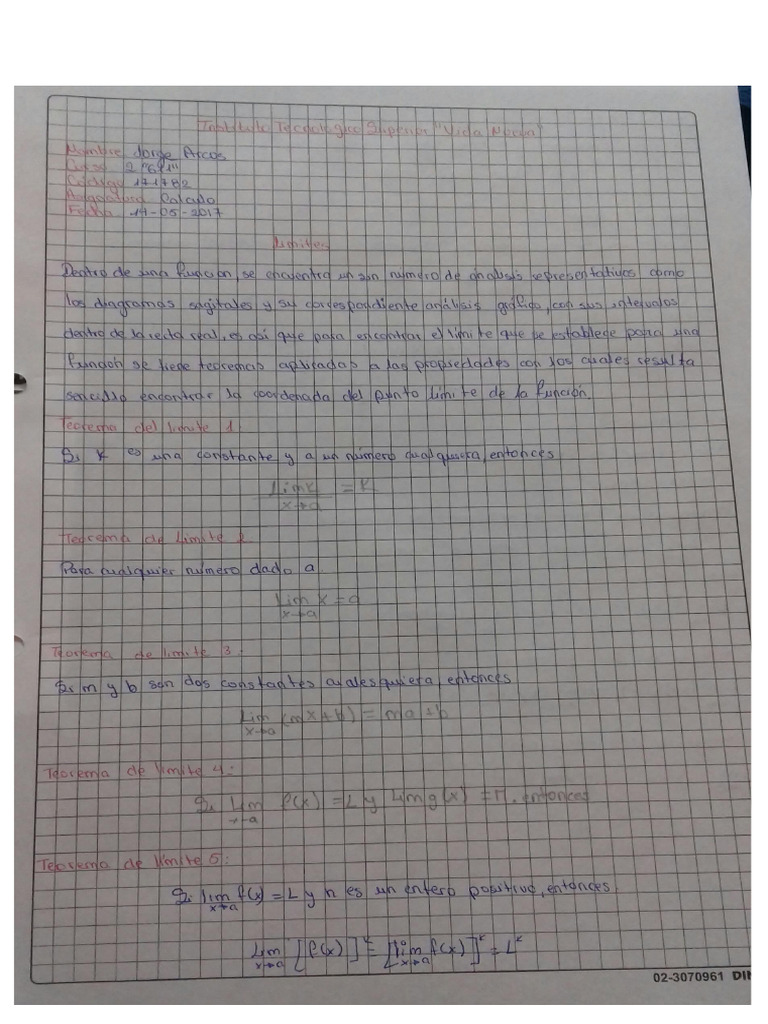 Instituto Tecnologico Superior "Vida Nueva"
Nombre Jorge Arcos
Curso 2
Código 171782
Asignatura Calculo
Fecha 14-05-2017
Limites
Dentro de una función, se encuentra un son numero de analisis representativos como
los diagramas sagitales y su correspondiente análisis gráfico, con sus intervalos
dentro de la recta real, es asi que para encontrar el limite que se establece para una
función se tiene teoremas aplicadas a las propiedades con los cuales resulta
sencillo encontrar la coordenada del punto limite de la función.
Teorema del limite 1:
Si K es una constante y a un número cualquiera, entonces
Lim K = K
x→a
Teorema de Limite 2
Para cualquier numero dado a
Lim x = a
x→a
Teorema de limite 3:
Si m y b son dos constantes cualesquiera, entonces
Lim (mx+b) = ma+b
x→a
Teorema de limite 4:
Si Lim f(x) = L y Lim g(x) = M, entonces
x→a
Teorema de limite 5:
Si lim f(x) = L y n es un entero positivo, entonces
x→a
Lim [f(x)]ᴷ = [lim f(x)]ᴷ = Lᴷ
x→a x→a
02-3070961 DIN